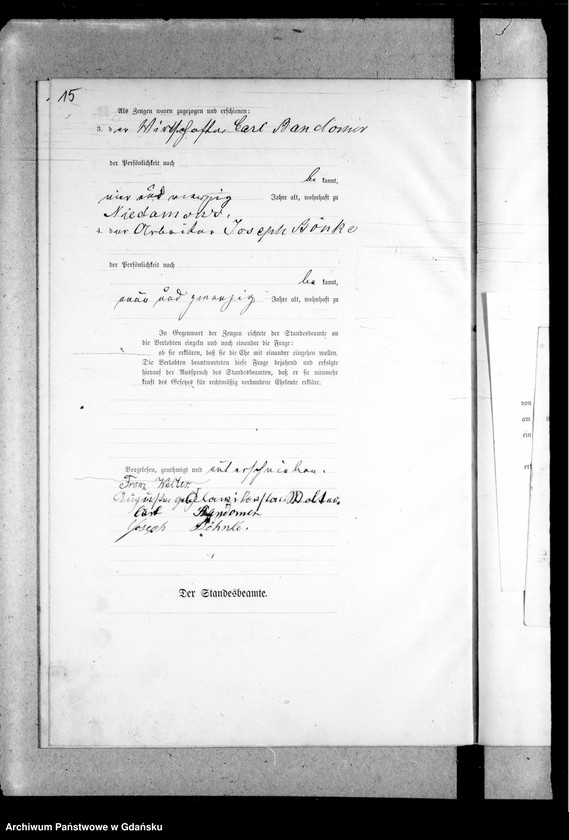 15
Als Zeugen waren zugezogen und erschienen:
3. der Wirthschafter Carl Bandomir
der Persönlichkeit nach
be kannt,
vier und vierzig Jahre alt, wohnhaft zu
Niedamowo,
4. der Arbeiter Joseph Bönke
der Persönlichkeit nach
be kannt,
neun und zwanzig Jahre alt, wohnhaft zu
In Gegenwart der Zeugen richtete der Standesbeamte an
die Verlobten einzeln und nach einander die Frage:
ob sie erklären, daß sie die Ehe mit einander eingehen wollen.
Die Verlobten beantworteten diese Frage bejahend und erfolgte
hierauf der Ausspruch des Standesbeamten, daß er sie nunmehr
kraft des Gesetzes für rechtmäßig verbundene Eheleute erkläre.
Vorgelesen, genehmigt und unterschrieben.
Franz
Carl Bandomir
Joseph Böhnke.
Der Standesbeamte.
von
am
ein
Archiwum Państwowe w Gdańsku